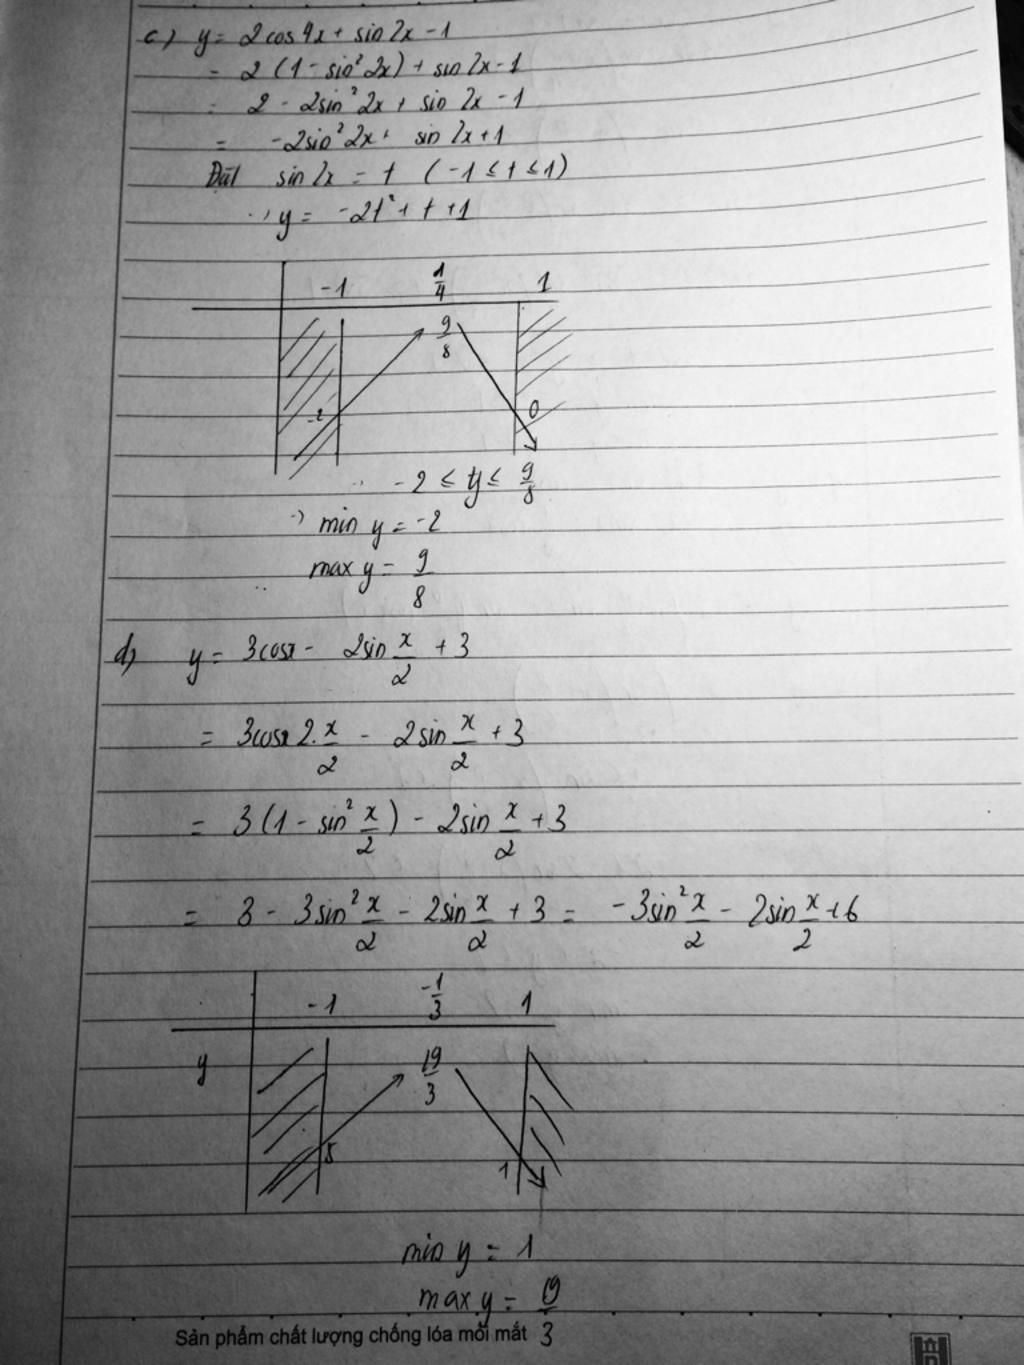 c) y = 2cos4x + sin2x - 1
= 2(1 - sin² 2x) + sin2x - 1
= 2 - 2sin² 2x + sin 2x - 1
= -2sin² 2x + sin 2x + 1
Đặt sin 2x = t (-1 ≤ t ≤ 1)
y = -2t² + t + 1
-1 1/4 1
9/8
-2 0
-2 ≤ y ≤ 9/8
→ min y = -2
max y = 9/8
d) y = 3cosx - 2sin x/2 + 3
= 3cosx 2.x/2 - 2sin x/2 + 3
= 3(1 - sin² x/2) - 2sin x/2 + 3
= 3 - 3sin² x/2 - 2sin x/2 + 3 = -3sin² x/2 - 2sin x/2 + 6
-1 -1/3 1
y 19/3
5 1
min y = 1
max y = 19/3
Sản phẩm chất lượng chống lóa mỏi mắt